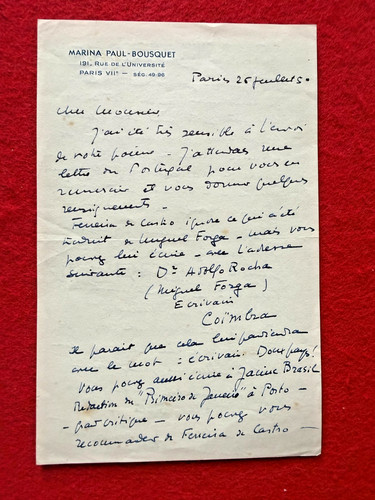 MARINA PAUL-BOUSQUET
191, RUE DE L'UNIVERSITÉ
PARIS VIIᵉ — SÉG. 49-96
Paris 25 juillet 5
Cher Monsieur
J'ai été très sensible à l'envoi
de votre poème - J'attendais une
lettre du Portugal pour vous en
remercier et vous donner quelques
renseignements -
Ferreira de Castro ignore ce qui a été
traduit de Miguel Forga - mais vous
pouvez lui écrire - avec l'adresse
suivante : Dr Adolfo Rocha
(Miguel Forga)
Ecrivain
Coïmbra
Il paraît que cela lui parviendra
avec le mot : écrivain. Doux pays !
Vous pouvez aussi écrire à Jacinc Brasil
Rédaction du "Primeiro de Janeiro" à Porto -
- critique - vous pouvez vous
recommander de Ferreira de Castro -